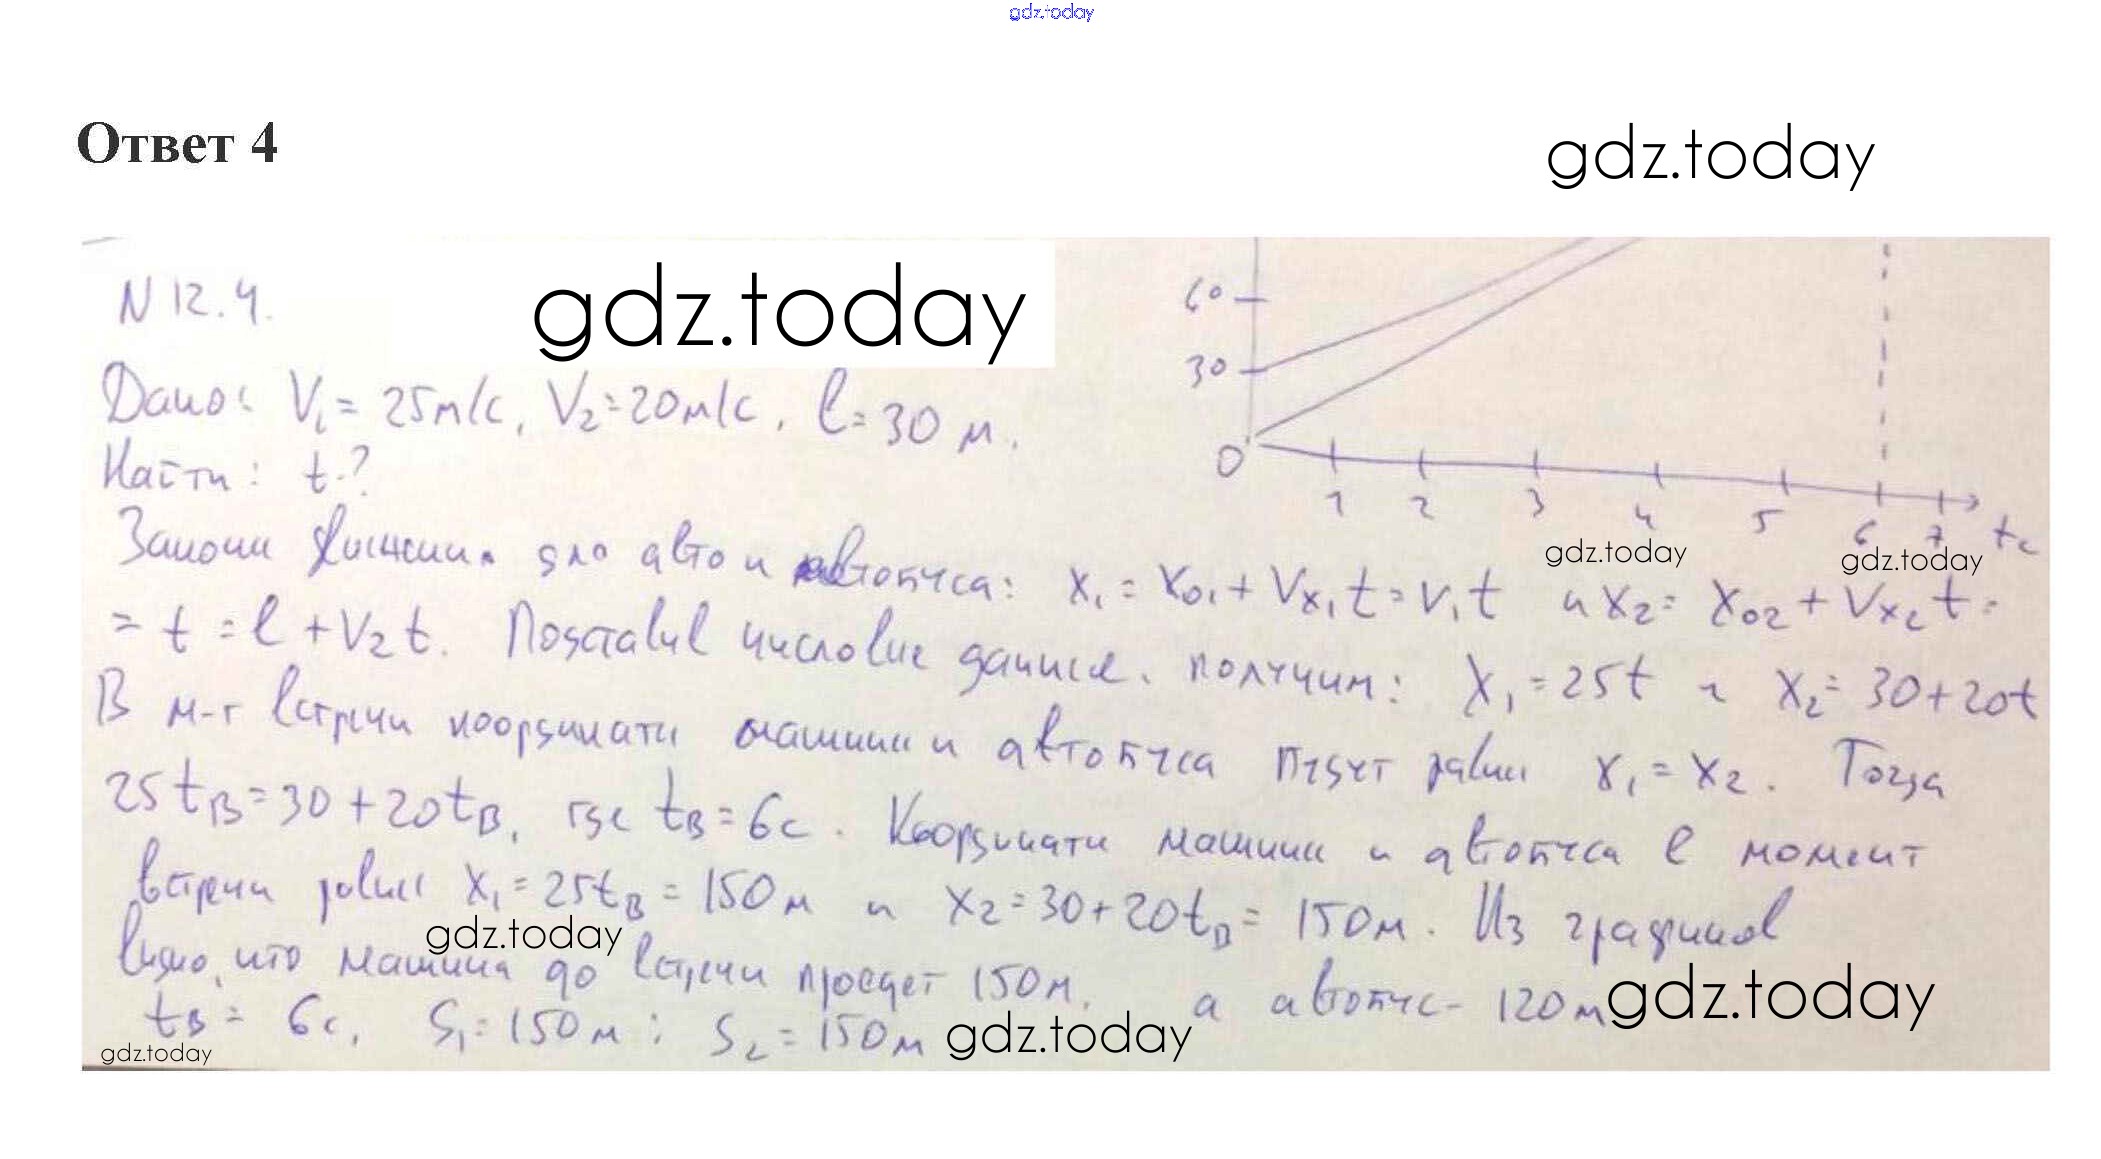 gdz.today
Ответ 4
gdz.today
N 12.4.
gdz.today
60
30
0
1 2 3 4 5 6 7 t c
Дано: V₁ = 25м/с, V₂ = 20м/с, l = 30 м.
Найти: t-?
gdz.today
gdz.today
Законы движения для авто и автобуса: x₁ = x₀₁ + Vx₁t = V₁t и x₂ = x₀₂ + Vx₂t =
= t = l + V₂t. Подставив числовые данные, получим: x₁ = 25t и x₂ = 30 + 20t
В м-т встречи координаты машины и автобуса будут равны x₁ = x₂. Тогда
25tв = 30 + 20tв, где tв = 6с. Координаты машины и автобуса в момент
встречи равны x₁ = 25tв = 150м и x₂ = 30 + 20tв = 150м. Из графиков
gdz.today
видно, что машина до встречи проедет 150м, а автобус - 120м
gdz.today
tв = 6с, S₁ = 150м; S₂ = 150м
gdz.today
gdz.today